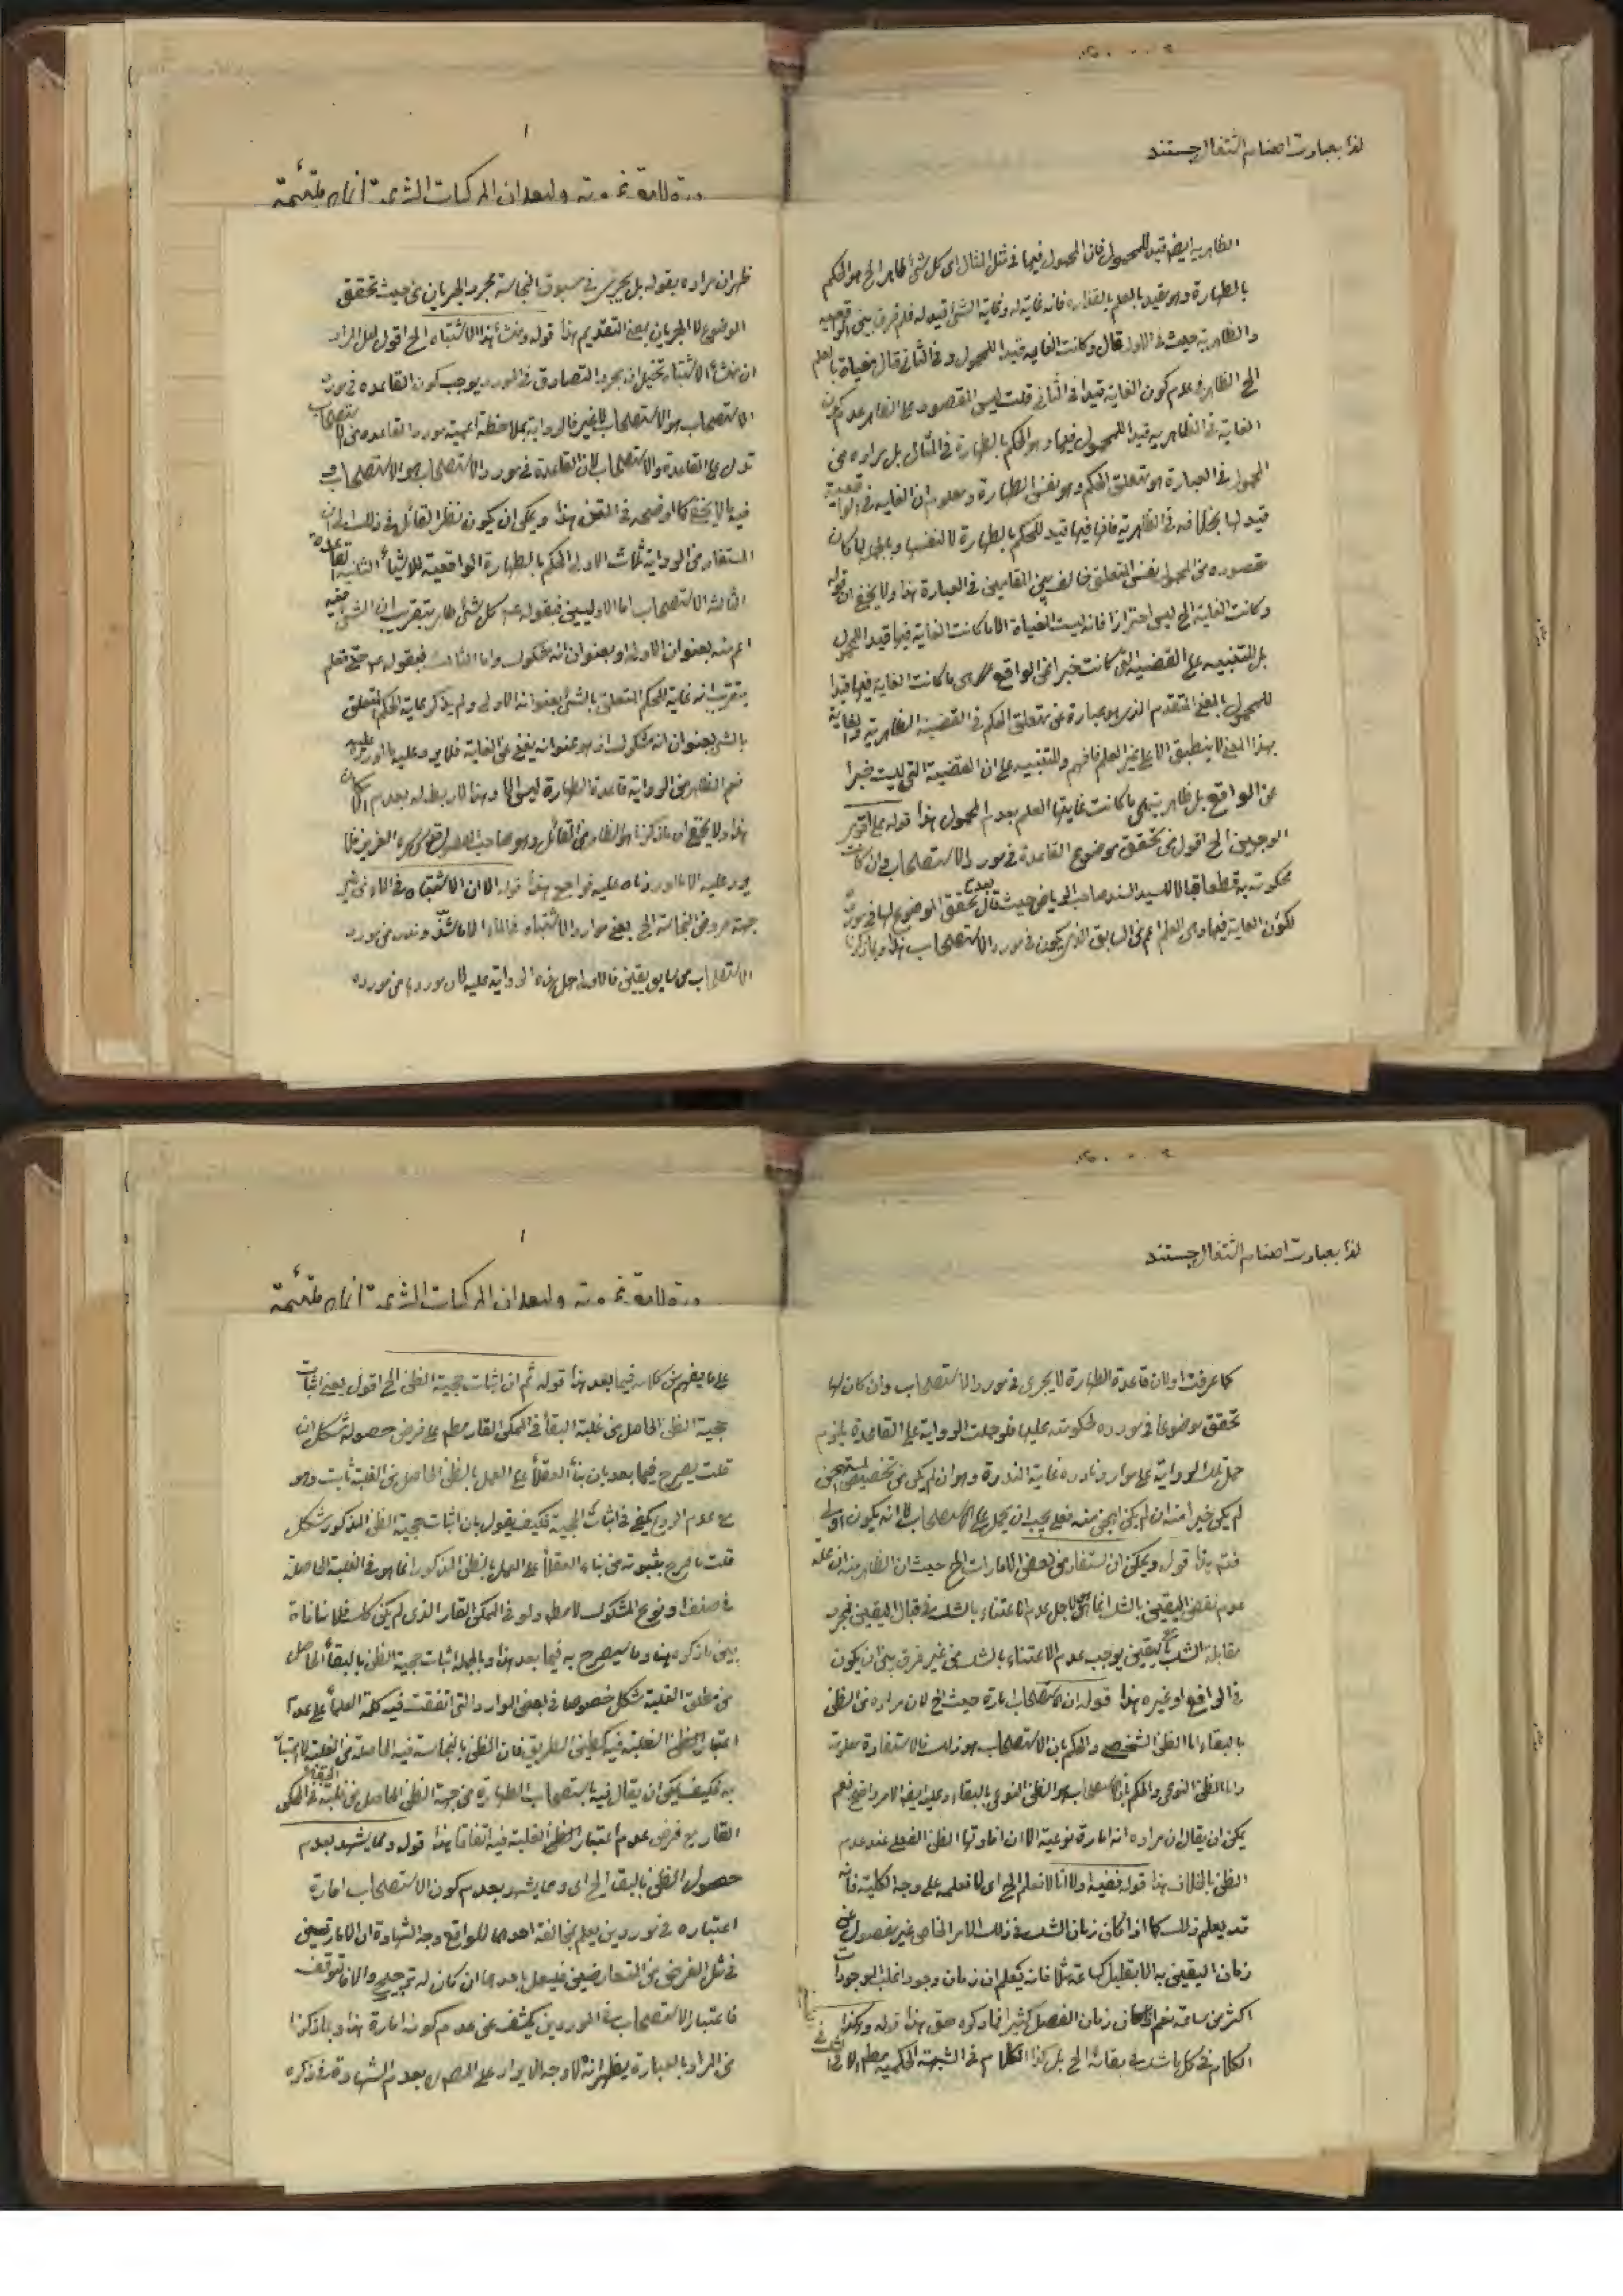 لذا بعبارت اعضاء اشتغال جستند
الظاهرية ايضا قيد للمحمول فان المحمول فيها فى مثل المثال اى كل شئ طاهر الخ هو الحكم
بالطهارة وهو مقيد بالعلم بالقذارة فانه غاية له وغاية الشئ قيد له فلم فرق بين الواقعية
والظاهرية حيث فى الاول قال وكانت الغاية قيدا للمحمول وفى الثانى قال مغياة بالعلم
الخ الظاهر فى عدم كون الغاية قيدا فى الثانى قلت ليس المقصود من الظاهر عدم كون
الغاية فى الظاهرية قيدا للمحمول فيها وهو الحكم بالطهارة فى المثال بل مراده من
المحمول فى العبارة هو متعلق الحكم وهو نفس الطهارة ومعلوم ان الغاية فى الواقعية
قيد لها بخلافه فى الظاهرية فانها فيها قيد للحكم بالطهارة لا لنفسها وبالجملة كان
مقصوده من المحمول نفس المتعلق خالف بين المقامين فى العبارة هذا ولا يخفى ان قوله
وكانت الغاية الخ ليس احترازا فانه ليست المغياة الا ما كانت الغاية فيها قيدا للمحمول
بل للتنبيه على القضية التى كانت خبرا عن الواقع هى ما كانت الغاية فيها قيدا
للمحمول بالمعنى المتقدم الذى هو عبارة عن متعلق الحكم فى القضية الظاهرية والغاية
بهذا المعنى لا ينطبق الا على غير العلم فافهم وللتنبيه على ان القضية التى ليست خبرا
عن الواقع بل ظاهرية هى ما كانت غايتها العلم بعدم المحمول هذا قوله على اقوى
الوجهين الخ اقول من تحقق موضوع القاعدة فى مورد الاستصحاب وان كانت
محكومة به قطعا قبالا للسيد السند صاحب الرياض حيث قال بعدم تحقق الموضوع لها فى مورده
لكون الغاية فيها وهى العلم اعم من السابق الذى يكون فى مورد الاستصحاب هذا وبما ذكرنا
ظهر ان مراده بقوله بل يجرى فى مسبوق النجاسة مجرد الجريان من حيث تحقق
الموضوع لا الجريان بمعنى التقديم هذا قوله ومنشأ هذا الاشتباه الخ اقول لعل المراد
ان منشأ الاشتباه تخيل ان مجرد التصادق فى المورد يوجب كون القاعدة فى مورد
الاستصحاب هو الاستصحاب لا غير فالرواية بملاحظة اعمية مورد القاعدة من الاستصحاب
تدل على القاعدة والاستصحاب لان القاعدة فى مورد الاستصحاب هو الاستصحاب و
فيه ما لا يخفى كما اوضحه فى المتن هذا ويمكن ان يكون نظر القائل فى ذلك الى ان
المستفاد من الرواية ثلاث الاولى الحكم بالطهارة الواقعية للاشياء الثانية القاعدة
الثالثة الاستصحاب اما الاوليين فبقوله ع كل شئ طاهر بتقريب ان الشئ فيه
اعم منه بعنوان الاولى او بعنوان انه مشكوك واما الثالث فبقوله ع حتى تعلم
بتقريب انه غاية للحكم المتعلق بالشئ بعنوانه الاولى ولم يذكر غاية الحكم المتعلق
بالشئ بعنوان انه مشكوك اذ هو عنوانه يغنى عن الغاية فلا يرد عليه ما اورده عليه
نعم الظاهر من الرواية قاعدة الطهارة ليس الا وهذا لا ربط له بعدم الامكان
هذا ولا يخفى ان ما ذكرنا هو الظاهر من القائل وهو صاحب الفصول قدس سره العزيز فلا
يرد عليه الا ما اوردناه عليه فراجع هذا قوله الا ان الاشتباه فى الماء من غير
جهة عروض النجاسة الخ يعنى موارد الاشتباه فى الماء الا ما شذ وندر من مورد
الاستصحاب من سابق يقين فالاولى حمل هذه الرواية عليه لان موردها من مورده
لذا بعبارت اعضاء اشتغال جستند
كما عرفت اولان قاعدة الطهارة لا يجرى فى مورد الاستصحاب وان كان لها
تحقق موضوعا فى مورده لحكومته عليها فلو حملت الرواية على القاعدة يلزم
حمل تلك الرواية على موارد نادرة غاية الندرة وهو ان لم يكن من تخصيص المستهجن
لم يكن خيرا منه ان لم يكن اهجن منه فعلى يجب ان يحمل على الاستصحاب لانه يكون اولى
فتم هذا قوله ويمكن ان يستفاد من بعض الامارات الخ حيث ان الظاهر منه ان علة
عدم نقض اليقين بالشك انما هى لاجل عدم الاعتناء بالشك فى قبال اليقين فمجرد
مقابلة الشك مع اليقين يوجب عدم الاعتناء بالشك من غير فرق بين ان يكون
فى الرافع او غيره هذا قوله ان الاستصحاب امارة حيث الخ لان مراده من الظن
بالبقاء اما الظن الشخصى والحكم بان الاستصحاب هو ذلك فالاستفادة معلومة
واما الظن النوعى والحكم بان الاستصحاب هو الظن النوعى بالبقاء وعليه ايضا الامر واضح نعم
يمكن ان يقال ان مراده انه امارة نوعية الا ان افادتها الظن الفعلى عند عدم
الظن بالخلاف هذا قوله ففيه اولا انا لا نعلم الخ اى لا نعلمه على وجه الكلية فانه
قد يعلم ذلك كما اذا كان زمان الشك فى ذلك الامر الخاص غير مفصول عن
زمان اليقين به الا بقليل كساعة مثلا فانه يعلم ان زمان وجود اغلب الموجودات
اكثر من ساعة نعم اذا كان زمان الفصل كثيرا فما ذكره حق هذا قوله وهكذا
الكلام فى كل ما شك فى بقائه الخ بل كذا الكلام فى الشبهة الحكمية مطم الا فى الشك فى
على ما يفهم من كلامه فيما بعد هذا قوله ثم ان اثبات حجية الظن الخ اقول يعنى اثبات
حجية الظن الحاصل من غلبة البقاء فى الممكن القار مطم على فرض حصوله مشكل ان
قلت يصرح فيما بعد بان بناء العقلاء على العمل بالظن الحاصل من الغلبة ثابت وهو
مع عدم الردع يكفى فى اثبات الحجية فكيف يقول بان اثبات حجية الظن المذكور مشكل
قلت ما صرح بثبوته من بناء العقلاء على العمل بالظن المذكور انما هو فى الغلبة الحاصلة
فى صنف او نوع المشكوك لا مطم ولو فى الممكن القار الذى لم يكن كك فلا منافاة
بين ما ذكره هنا وما سيصرح به فيما بعد هذا وبالجملة اثبات حجية الظن بالبقاء الحاصل
من مطلق الغلبة مشكل خصوصا فى بعض الموارد التى اتفقت فيه كلمة العلماء على عدم
اعتبار الظن الغلبة فيه كطين الطريق فان الظن بالنجاسة فيه الحاصلة من الغلبة لا اعتبار
به فكيف يمكن ان يقال فيه باستصحاب الطهارة من جهة الظن الحاصل من غلبة البقاء فى الممكن
القار مع فرض عدم اعتبار الظن الغلبة فيه اتفاقا هذا قوله ومما يشهد بعدم
حصول الظن بالبقاء الخ اى ومما يشهد بعدم كون الاستصحاب امارة
اعتباره فى موردين يعلم بمخالفة احدهما للواقع وجه الشهادة ان الامارتين
فى مثل الفرض من المتعارضين فيعمل باحدهما ان كان له ترجيح والا فالتوقف
فاعتبار الاستصحاب فى الموردين يكشف عن عدم كونه امارة هذا وبما ذكرنا
من المراد بالعبارة يظهر انه لا وجه لا يراد على المص ره بعدم الشهادة فى ذكره